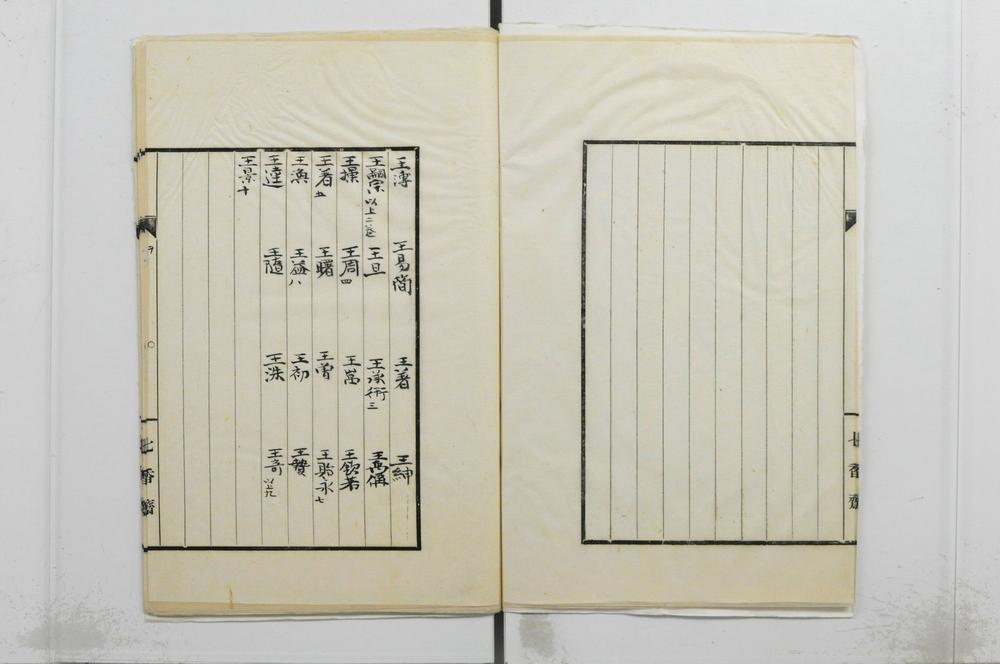 王溥 王易簡 王著 王紳
王嗣宗以上二卷 王旦 王承衍三 王禹偁
王操 王周四 王嵩 王欽若
王著五 王曙 王曾 王貽永七
王渙 王益八 王初 王贄
王逵 王隨 王洙 王奇以上九
王景十
七香齋
七香齋